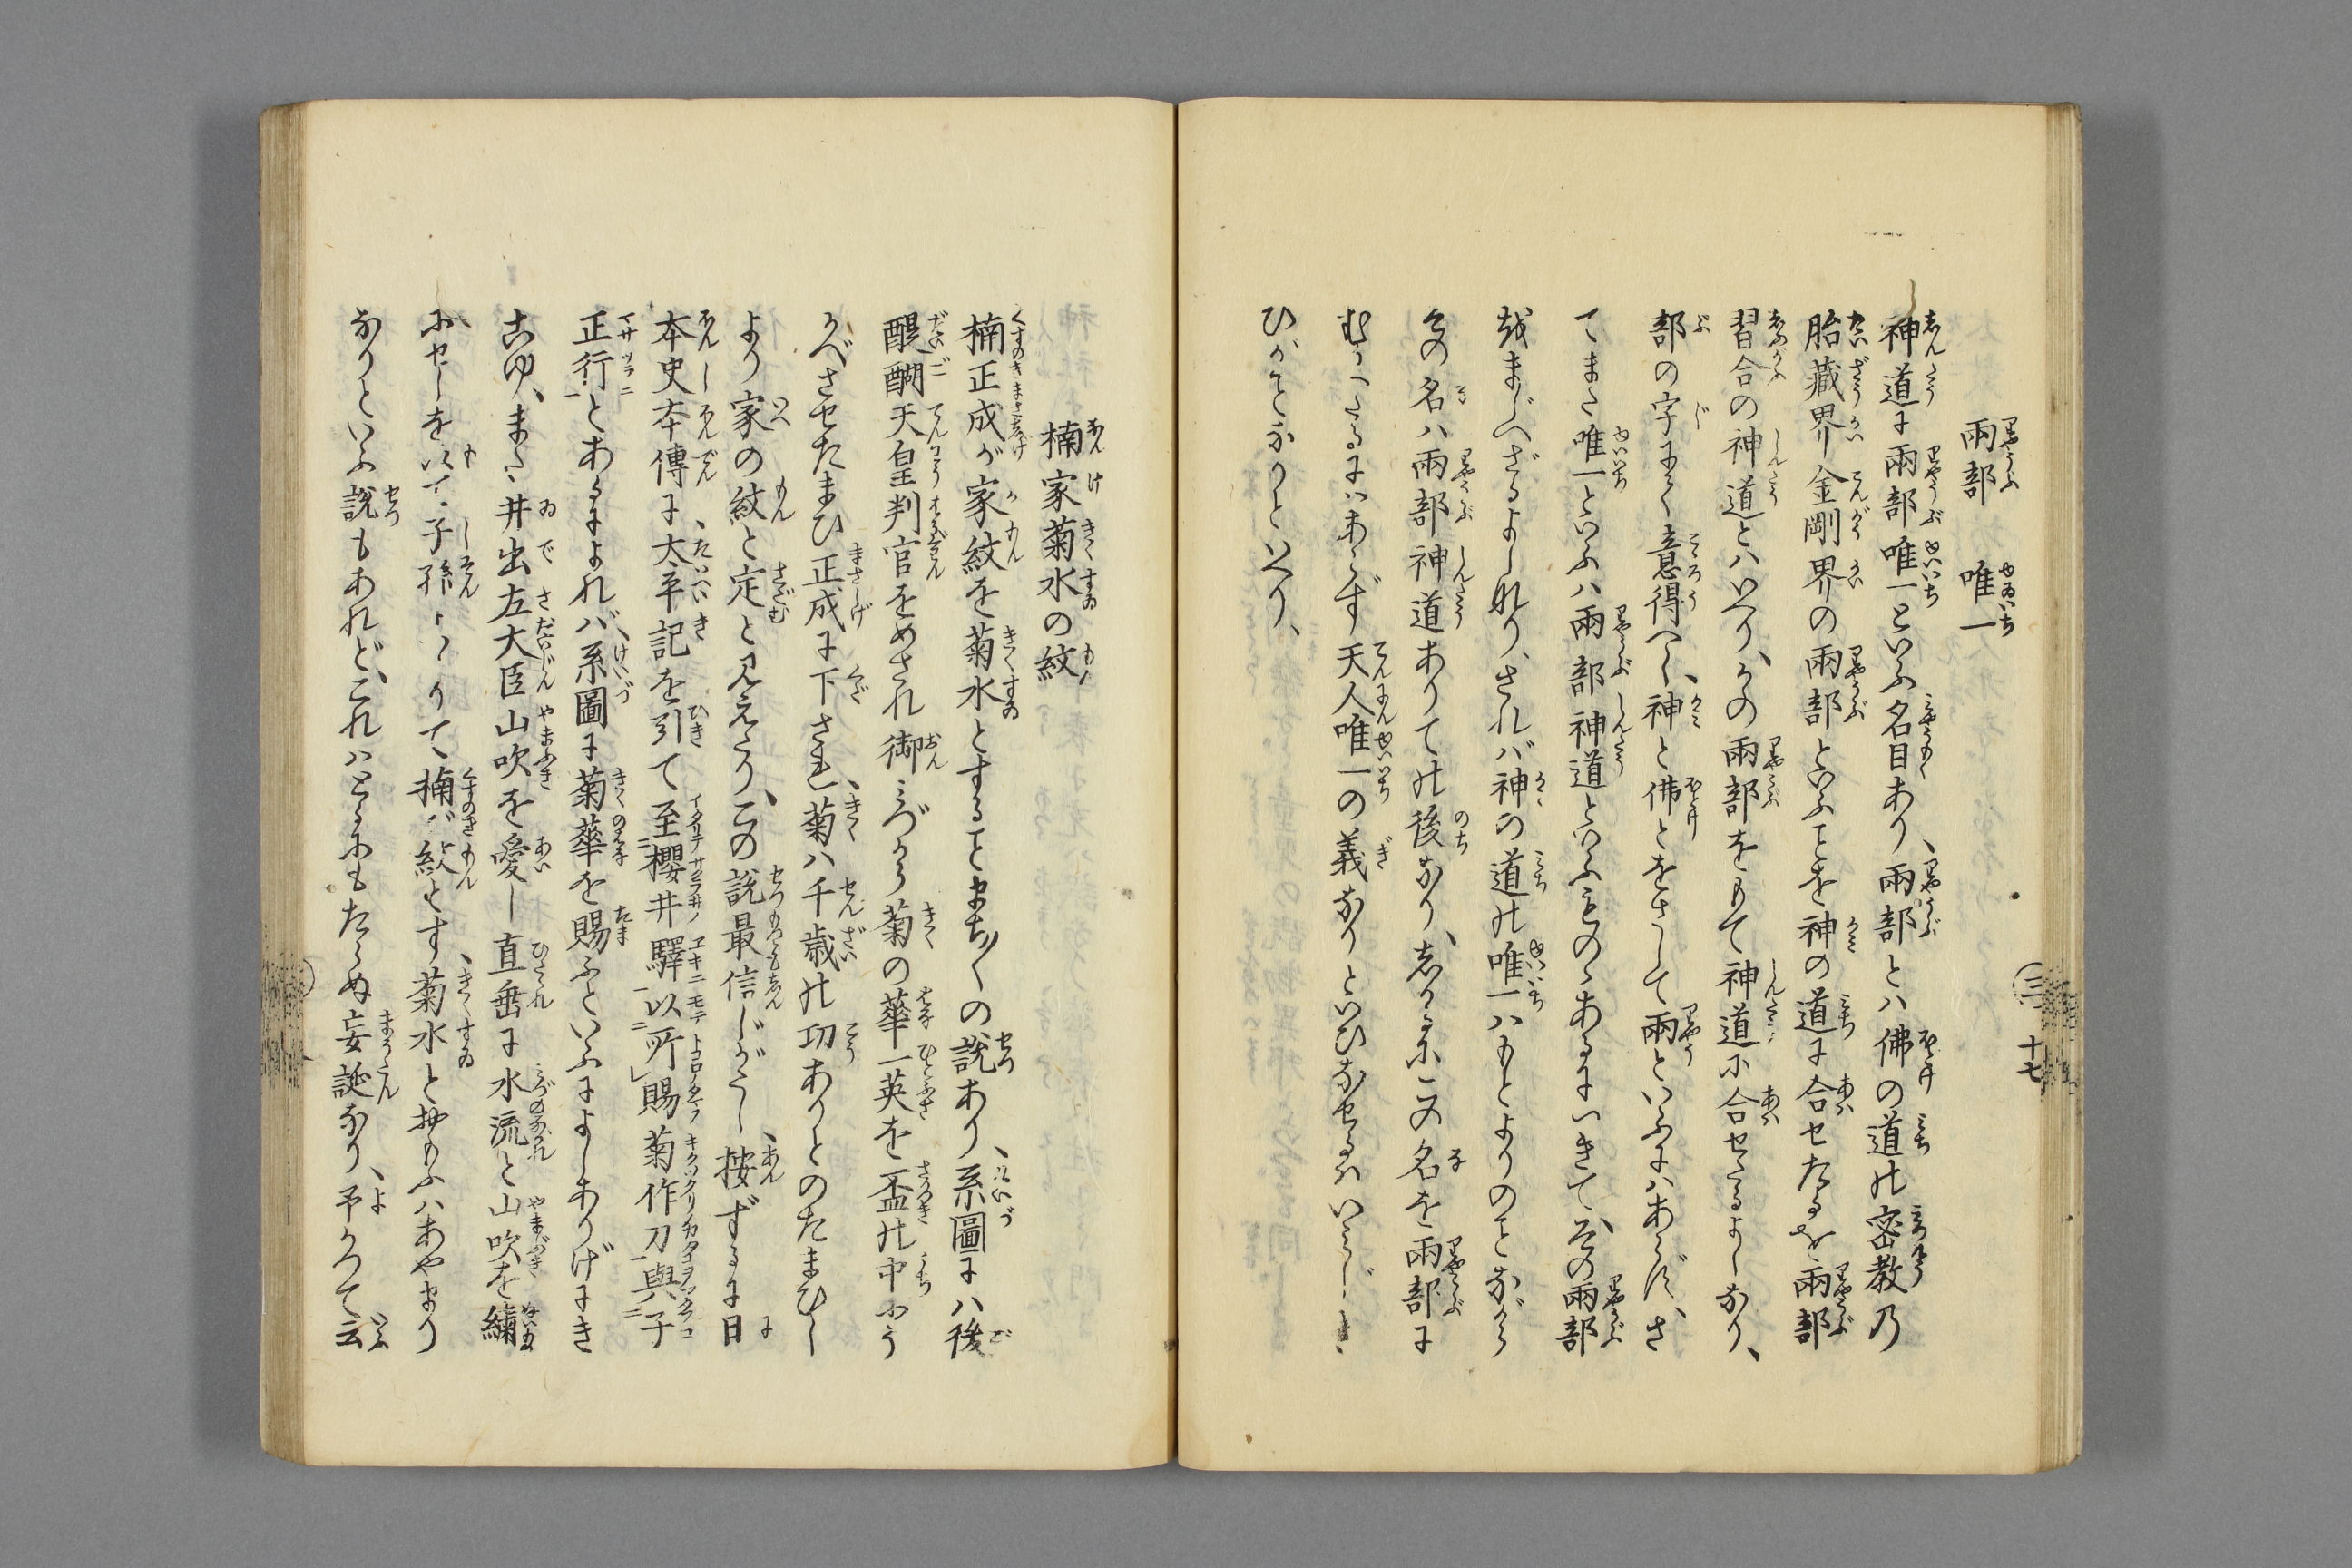 兩部　唯一
神道に兩部唯一といふ名目あり、兩部とハ佛の道の密教乃
胎藏界金剛界の兩部といふことを神の道に合セたるを兩部
習合の神道とハいへり、かの兩部をもて神道に合セたるよしなり、
部の字にて意得べし、神と佛とをさして兩といふにハあらず、さ
てまた唯一といふハ兩部神道といふものゝあるにいきて、その兩部
をまじへざるよしなり、されバ神の道の唯一ハもとよりのことながら
その名ハ兩部神道ありての後なり、しかるにこの名を兩部に
むかへたるにハあらず天人唯一の義なりといひなせるハいみじき
ひがことなりといへり、
三　十七
楠家菊水の紋
楠正成が家紋を菊水とすることまち〳〵の説あり、系圖にハ後
醍醐天皇判官をめされ御みづから菊の華一英を盃の中にう
かべさせたまひ正成に下され、菊ハ千歳の功ありとのたまひし
より家の紋と定と見えたり、この説最信じがたし、按ずるに日
本史本傳に、太平記を引て至櫻井驛以所賜菊作刀與子
正行とあるによれバ、系圖に菊華を賜ふといふによしありげにき
こゆ、また井出左大臣山吹を愛し直垂に水流と山吹を繍
にせしを以て、子孫よりて楠が紋とす、菊水と抄もふハあやまり
なりといふ説もあれど、これハとるにもたらぬ妄誕なり、予かつて云